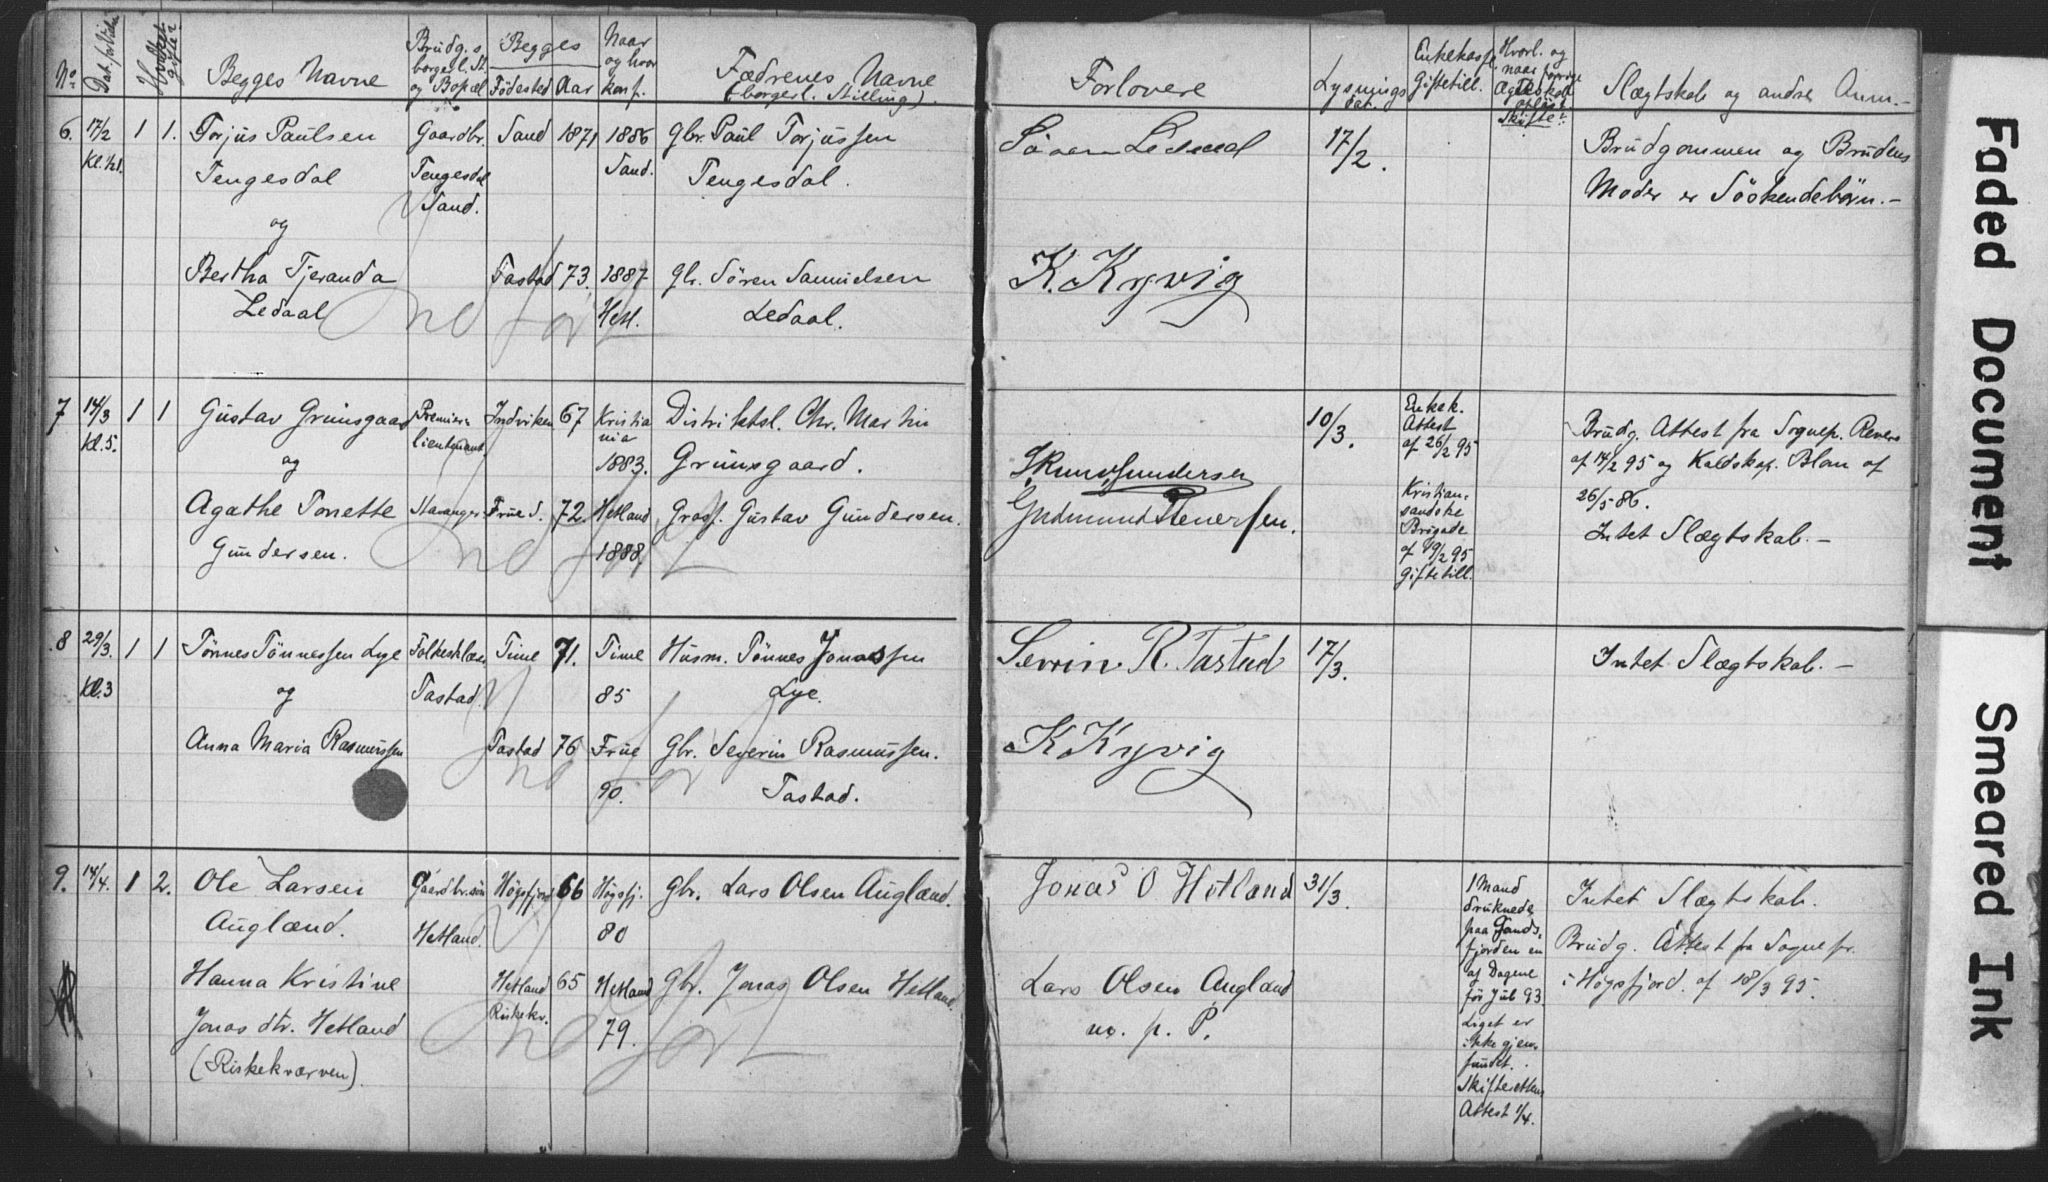 No Dat. for Vielse Hvilket gifte Begges Navne Brudg.s borgerl. St. og Bopæl Begges Födested Aar Naar og hvor konf. Fædrenes Navne (borgerl. Stilling).
Forlovere Lysnings dat. Enkekasse Giftetill. Hvorl. og naar forrige Ægteskab opløst. Skifte? Slægtskab og andre Anm.-
6. 17/2 1 1. Torjus Paulsen Gaardbr. Sand 1871 1886 Gbr. Paul Torjussen
Kl. 1/21. Tengesdal Tengesdal Sand. Tengesdal.
Sand.
og
Bertha Tjeranda Tastad 73. 1887 Gbr. Sören Samuelsen
Ledaal Hetl. Ledaal.
Indfört
Sören Ledaal 17/2. Brudgommen og Brudens
Moder er Söskendebörn.-
K. Kyvig
7 14/3 1 1 Gustav Grimsgaard Premier= Indviken 67 Kristia Distriktsl. Chr. Martin
Kl. 5. lieutenant nia
og 1883. Grimsgaard.
Agathe Tonette Stavanger Frue S. 72. Hetland Gross. Gustav Gundersen.
Gundersen. 1888.
Indfört
10/3. Enkek. Brudg. Attest fra Sognep.
Attest af 14/2 95 og Koldskop. Blan af
af 26/2 95 26/5 86.
Gundersen
Kristian= Intet Slægtskab.-
sandske
Gudmund
Brigade
af 19/2 95
Giftetill.
8 29/3. 1 1 Tönnes Tönnessen Lye Time 71. Time Husm. Tönnes Jonassen
Kl. 3 og Tastad. 85 Lye.
Anna Maria Rasmussen Tastad 76 Frue Gbr. Severin Rasmussen.
90. Tastad.
Indfört
Sevrin R. Tastad 17/3. Intet Slægtskab.-
K Kyvig
9. 14/4. 1 2. Ole Larsen Gaardbr.sön Högsfjord 66 Högsfj. Gbr. Lars Olsen Auglænd.
Auglænd. Hetland. 80
Hanna Kristine Hetland 65 Hetland Gbr. Jonas Olsen Hetland
Jonas dtr. Hetland Riskekv. 79.
(Riskekværven).
Indfört
Jonas O Hetland 31/3. 1 Mand Intet Slægtskab.
druknede
paa Gands= Brudg. Attest fra Sognepr.
fjorden en
Lars Olsen Augland af Dagene i Högsfjord. af 18/3 95.
för Jul 93
m. p. P. Liget er
ikke gjen=
fundet.
Skifterettens
Attest 1/4.
Faded Document
Smeared Ink